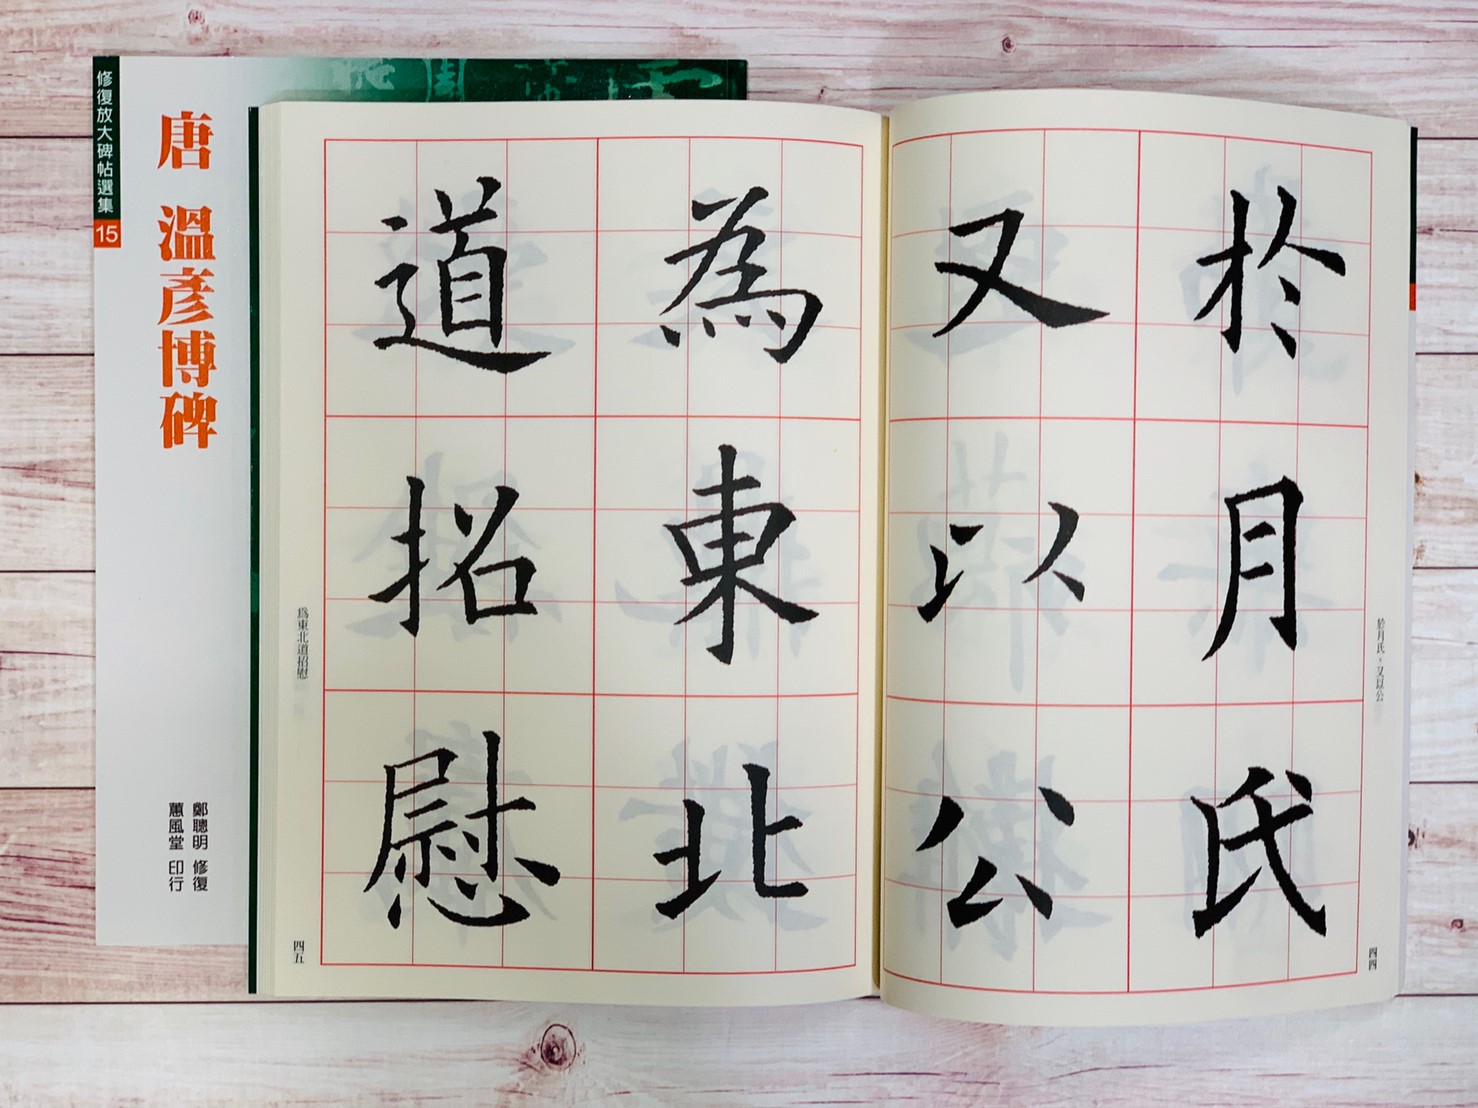 修復放大碑帖選集
15
唐 溫彥博碑
鄭聰明 修復
蕙風堂 印行
於月氏
又以公
於月氏。又以公
四四
為東北
道招慰
為東北道招慰
四五